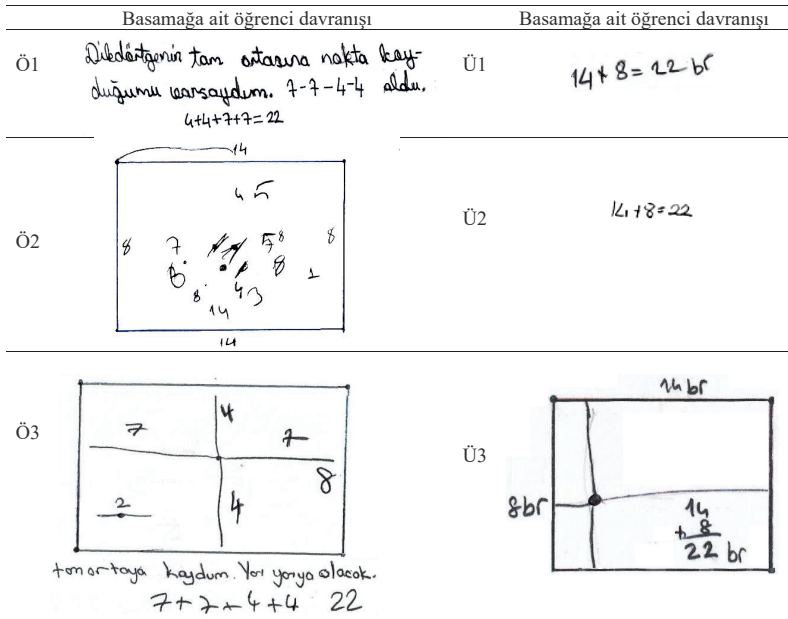 Basamağa ait öğrenci davranışı
Basamağa ait öğrenci davranışı
Ö1
Dikdörtgenin tam ortasına nokta koy-
duğumu varsaydım. 7-7-4-4 oldu.
4+4+7+7=22
Ü1
14+8=22 br
Ö2
14
4 5
8 7 8 8
6 8 1
8 4 3
14
14
Ü2
14+8=22
Ö3
4
7 7
8
2 4
tam ortaya koydum. Yarı yarıya olacak.
7+7+4+4 22
Ü3
14 br
8br
14
+ 8
22 br